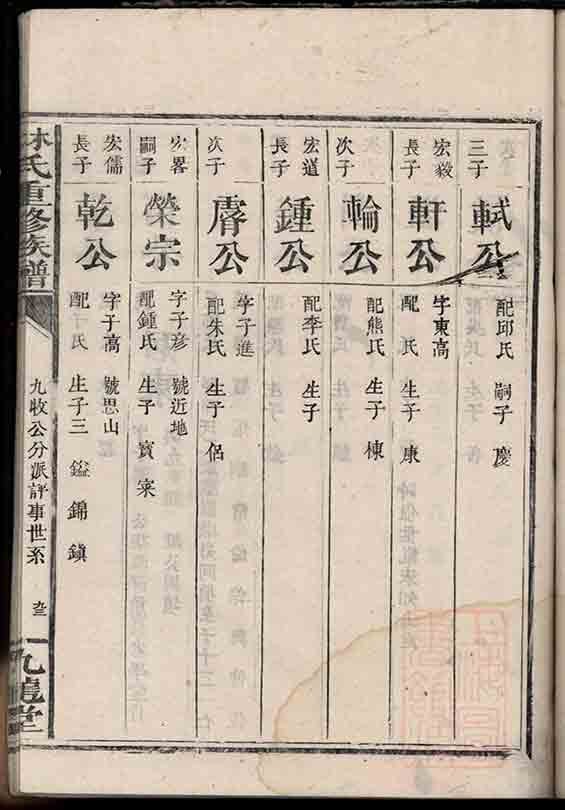 三子
軾公
配邱氏 嗣子慶
宏毅
長子
軒公
字東高
配 氏 生子康
次子
輪公
配熊氏 生子棟
宏道
長子
鍾公
配李氏 生子
次子
膺公
字子進
配朱氏 生子侶
宏畧
嗣子
榮宗
字子彥 號近地
配鍾氏 生子寳寀
宏儒
長子
乾公
字子高 號思山
配于氏 生子三 鎰錦鎮
林氏重修族譜
九收公分派評事世系
九龍堂